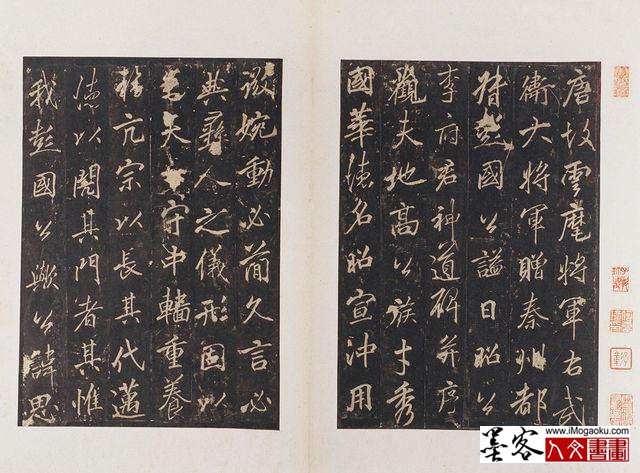 唐故雲麾將軍右武
衛大將軍贈秦州都
督彭國公謚曰昭公
李府君神道碑并序
觀夫地高公族才秀
國華德名昭宣沖用
微婉動必簡久言必
典彝人之儀形國以
夫守中轄重養
亢宗以長其代邁
德以閱其門者其惟
我彭國公歟公諱思
墨客
www.iMogaoku.com
人文書畫